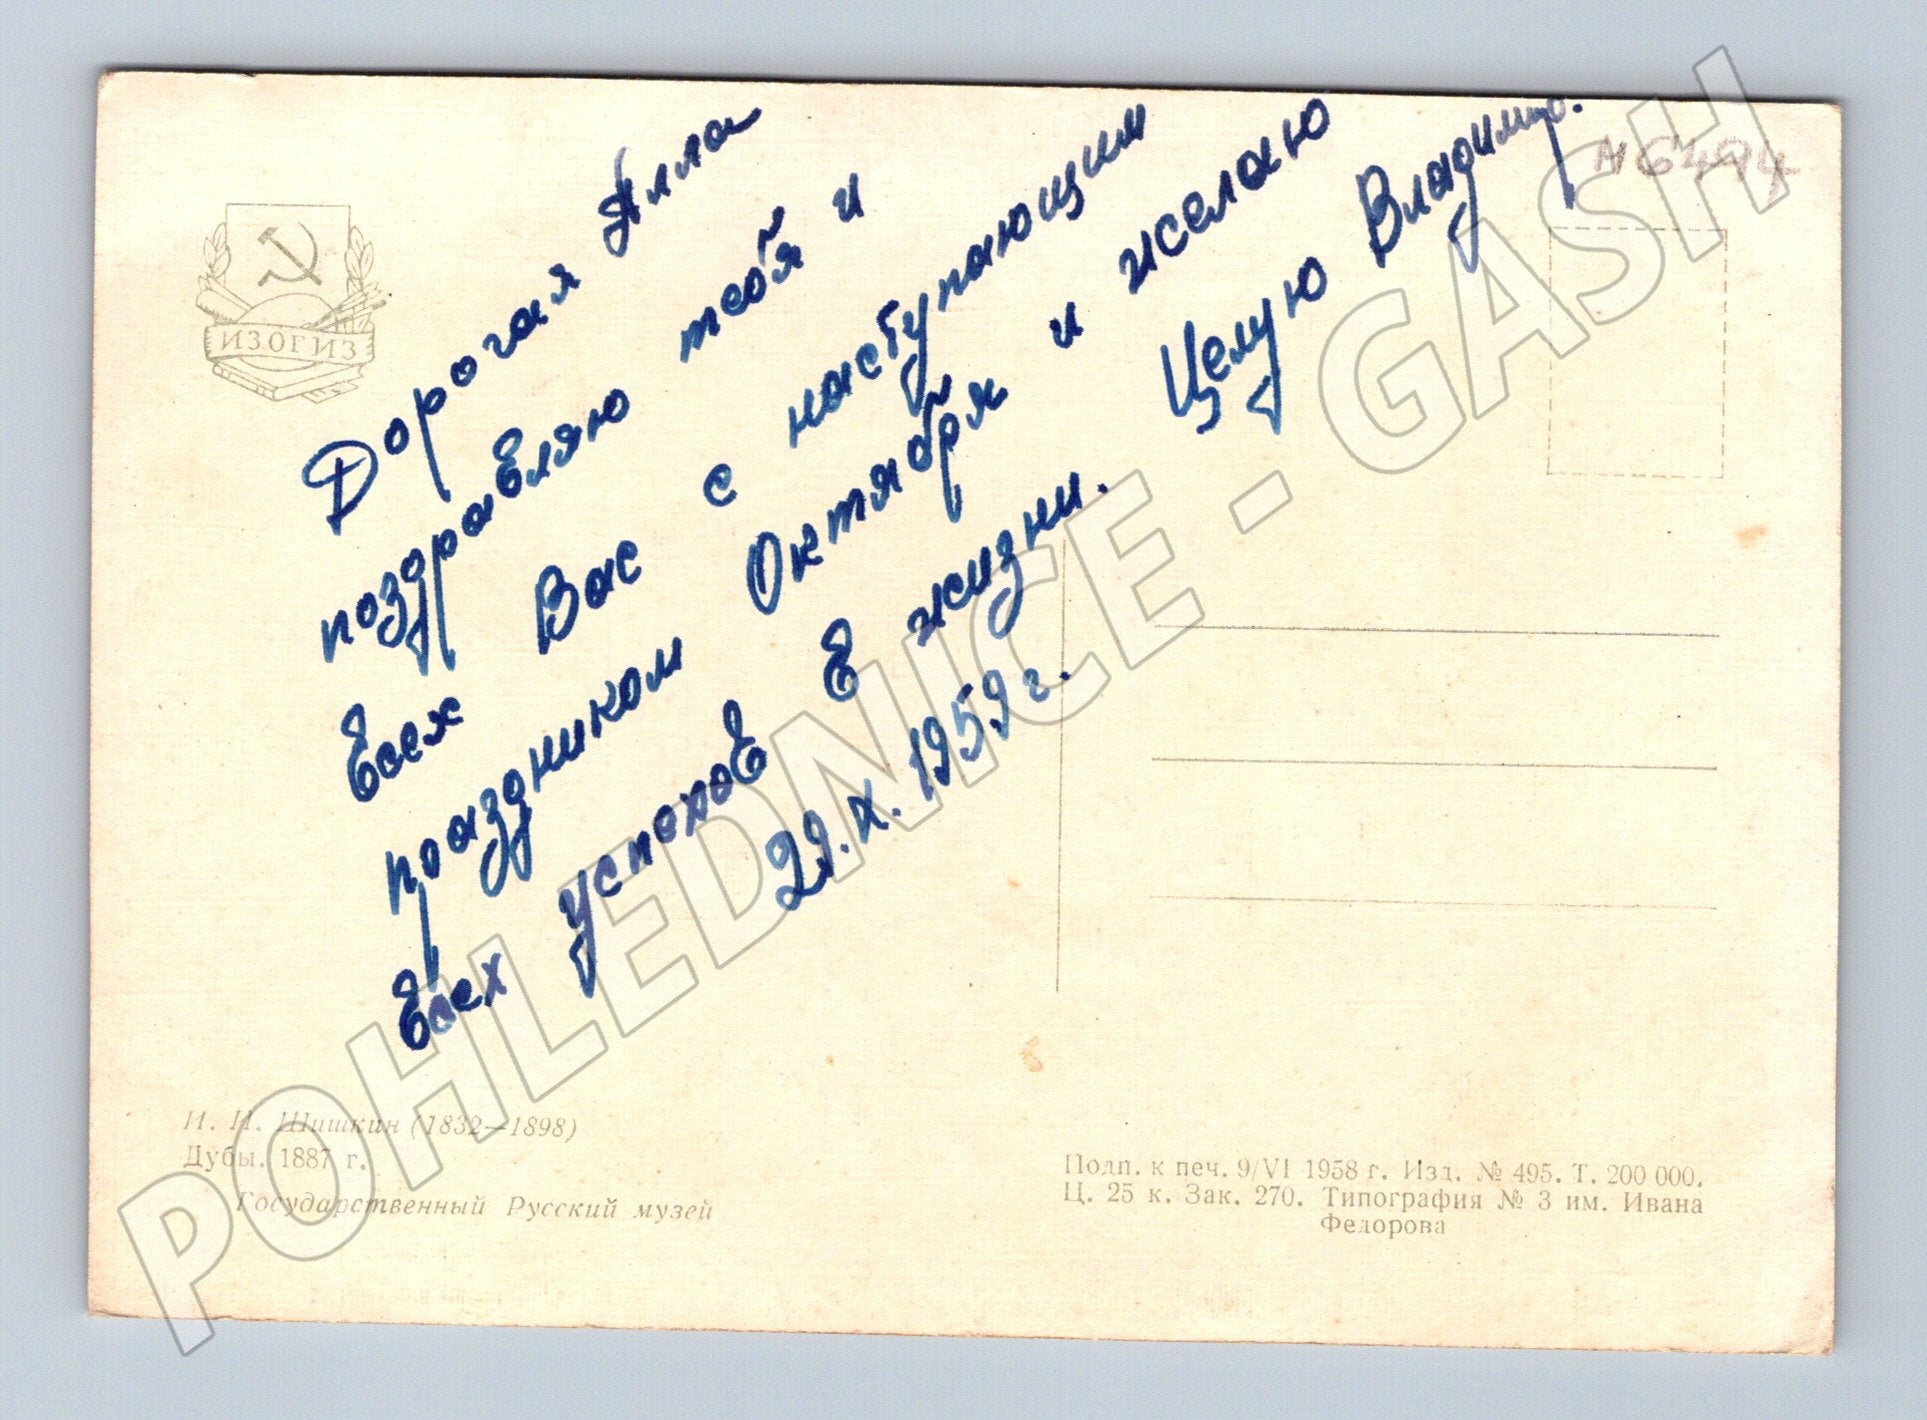 ИЗОГИЗ
Дорогая Алла
поздравляю тебя и
Всех Вас с наступающим
праздником Октября и желаю
Всех успехов В жизни. Целую Владимир.
29.X.1959 г.
И. И. Шишкин (1832—1898)
Дубы. 1887 г.
Государственный Русский музей
Подп. к печ. 9/VI 1958 г. Изд. № 495. Т. 200 000.
Ц. 25 к. Зак. 270. Типография № 3 им. Ивана
Федорова
POHLEDNICE - GASH